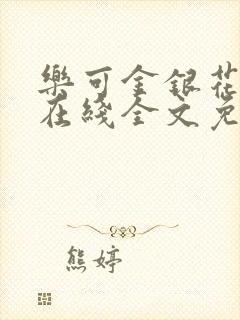 樂可金銀花
在綫全文免
熊婷